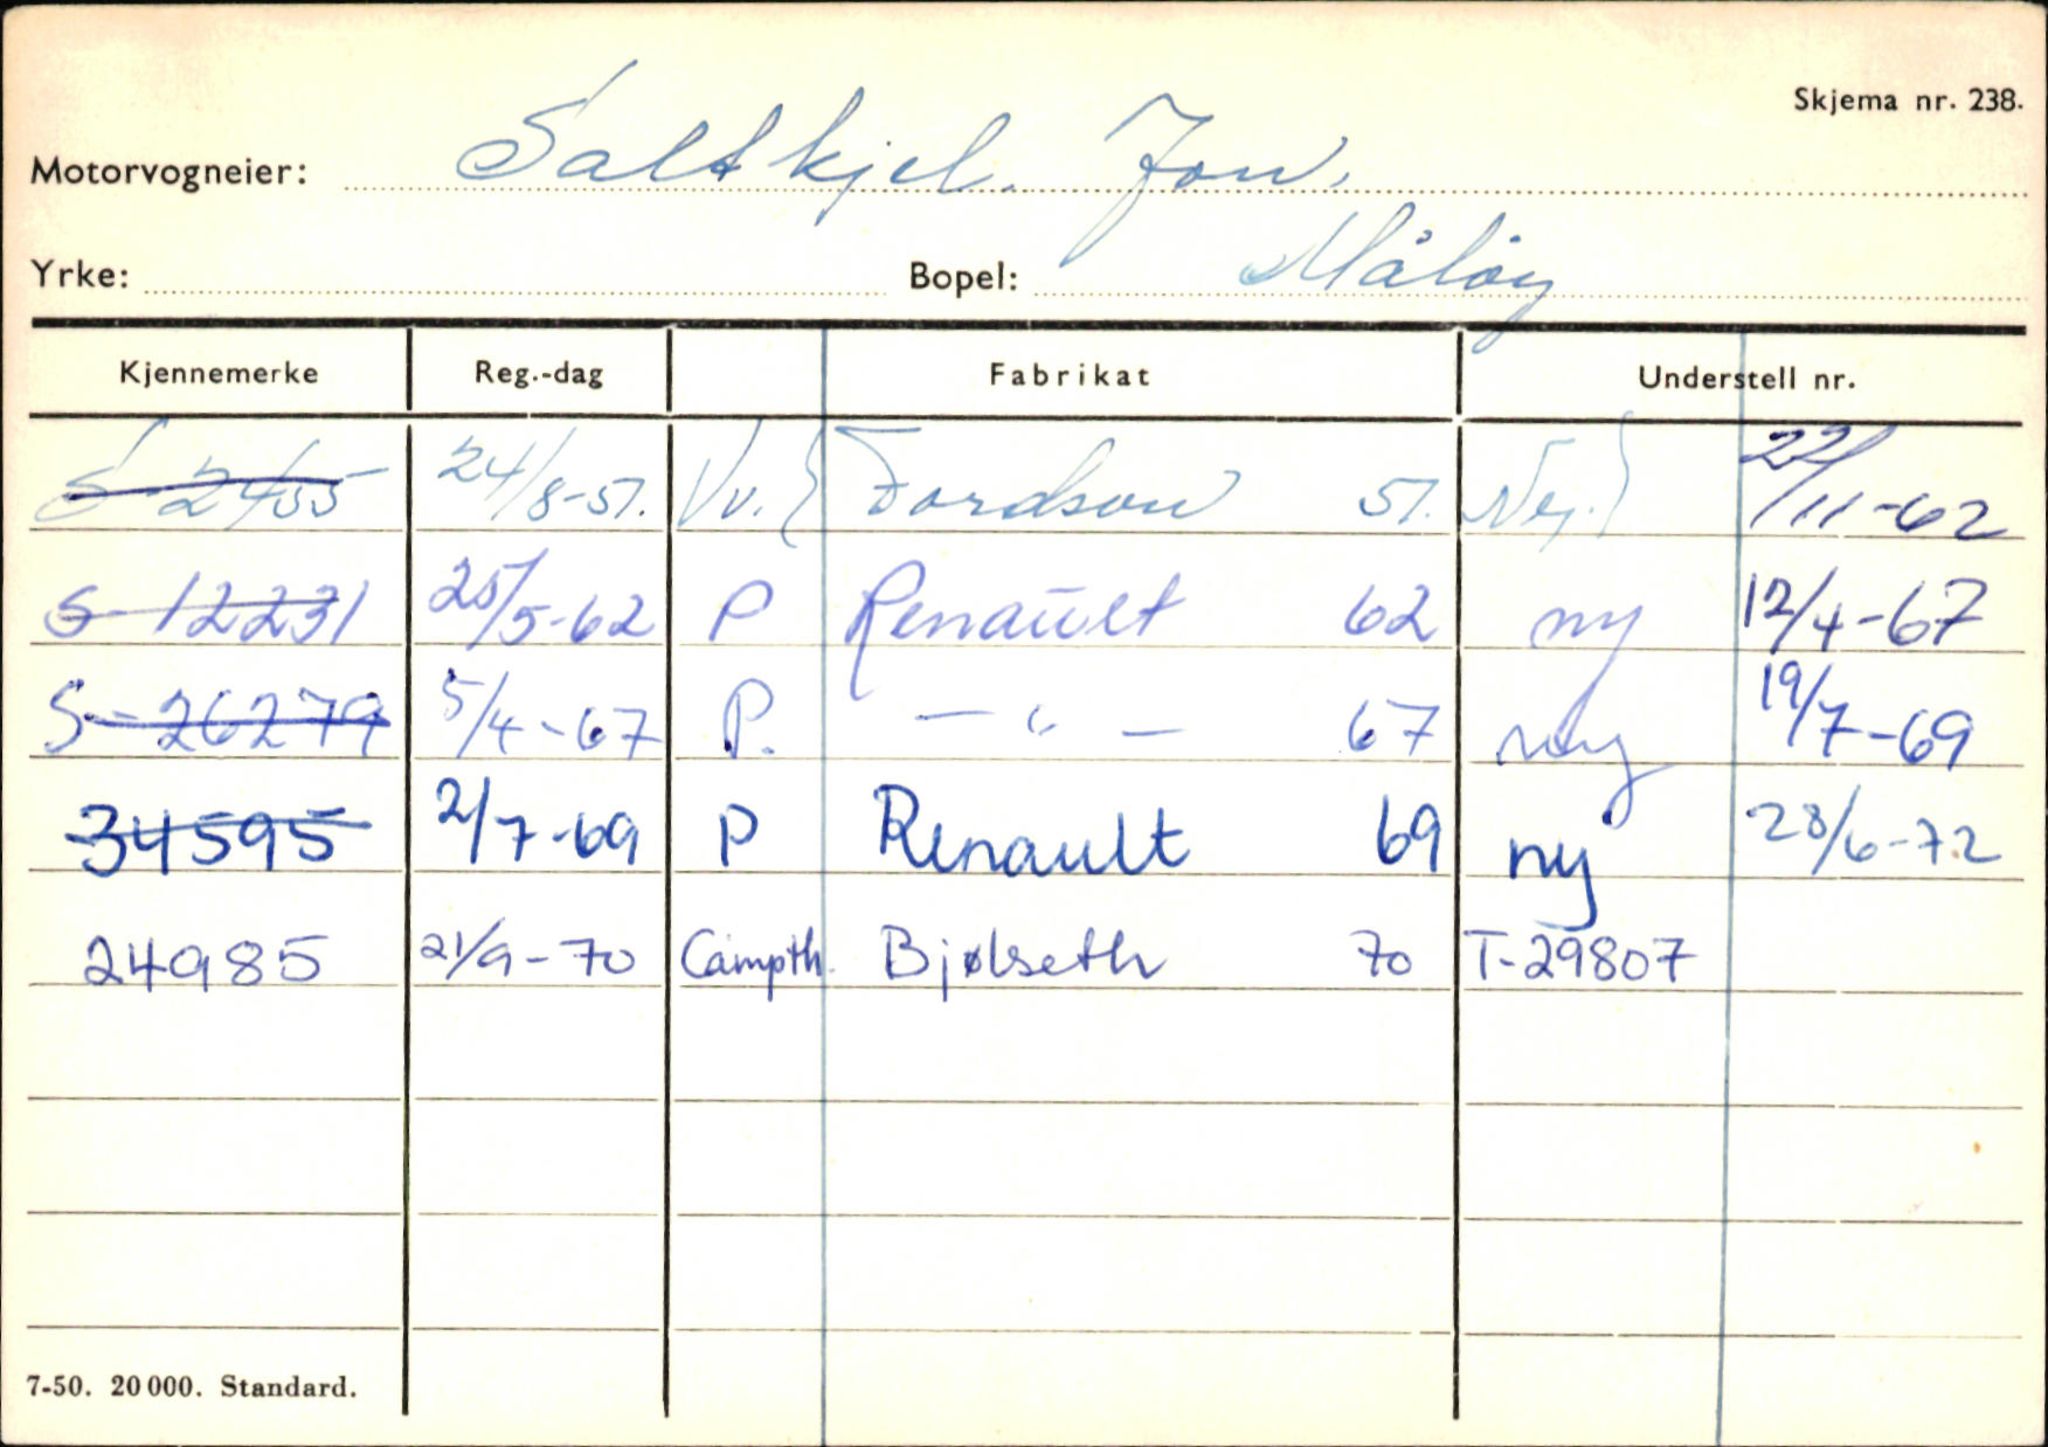 Skjema nr. 238.
Motorvogneier: Saltkjel. Jon.
Yrke: Bopel: Måløy
Kjennemerke Reg.-dag Fabrikat Understell nr.
S-2455 24/8-51. Vv. Fordson 51. Ny. 22/11-62
S-12231 25/5-62 P Renault 62 ny 12/4-67
S-26279 5/4-67 P. — " — 67 ny 19/7-69
34595 2/7-69 P Renault 69 ny 28/6-72
24985 21/9-70 Campth. Bjølseth 70 T-29807
7-50. 20 000. Standard.